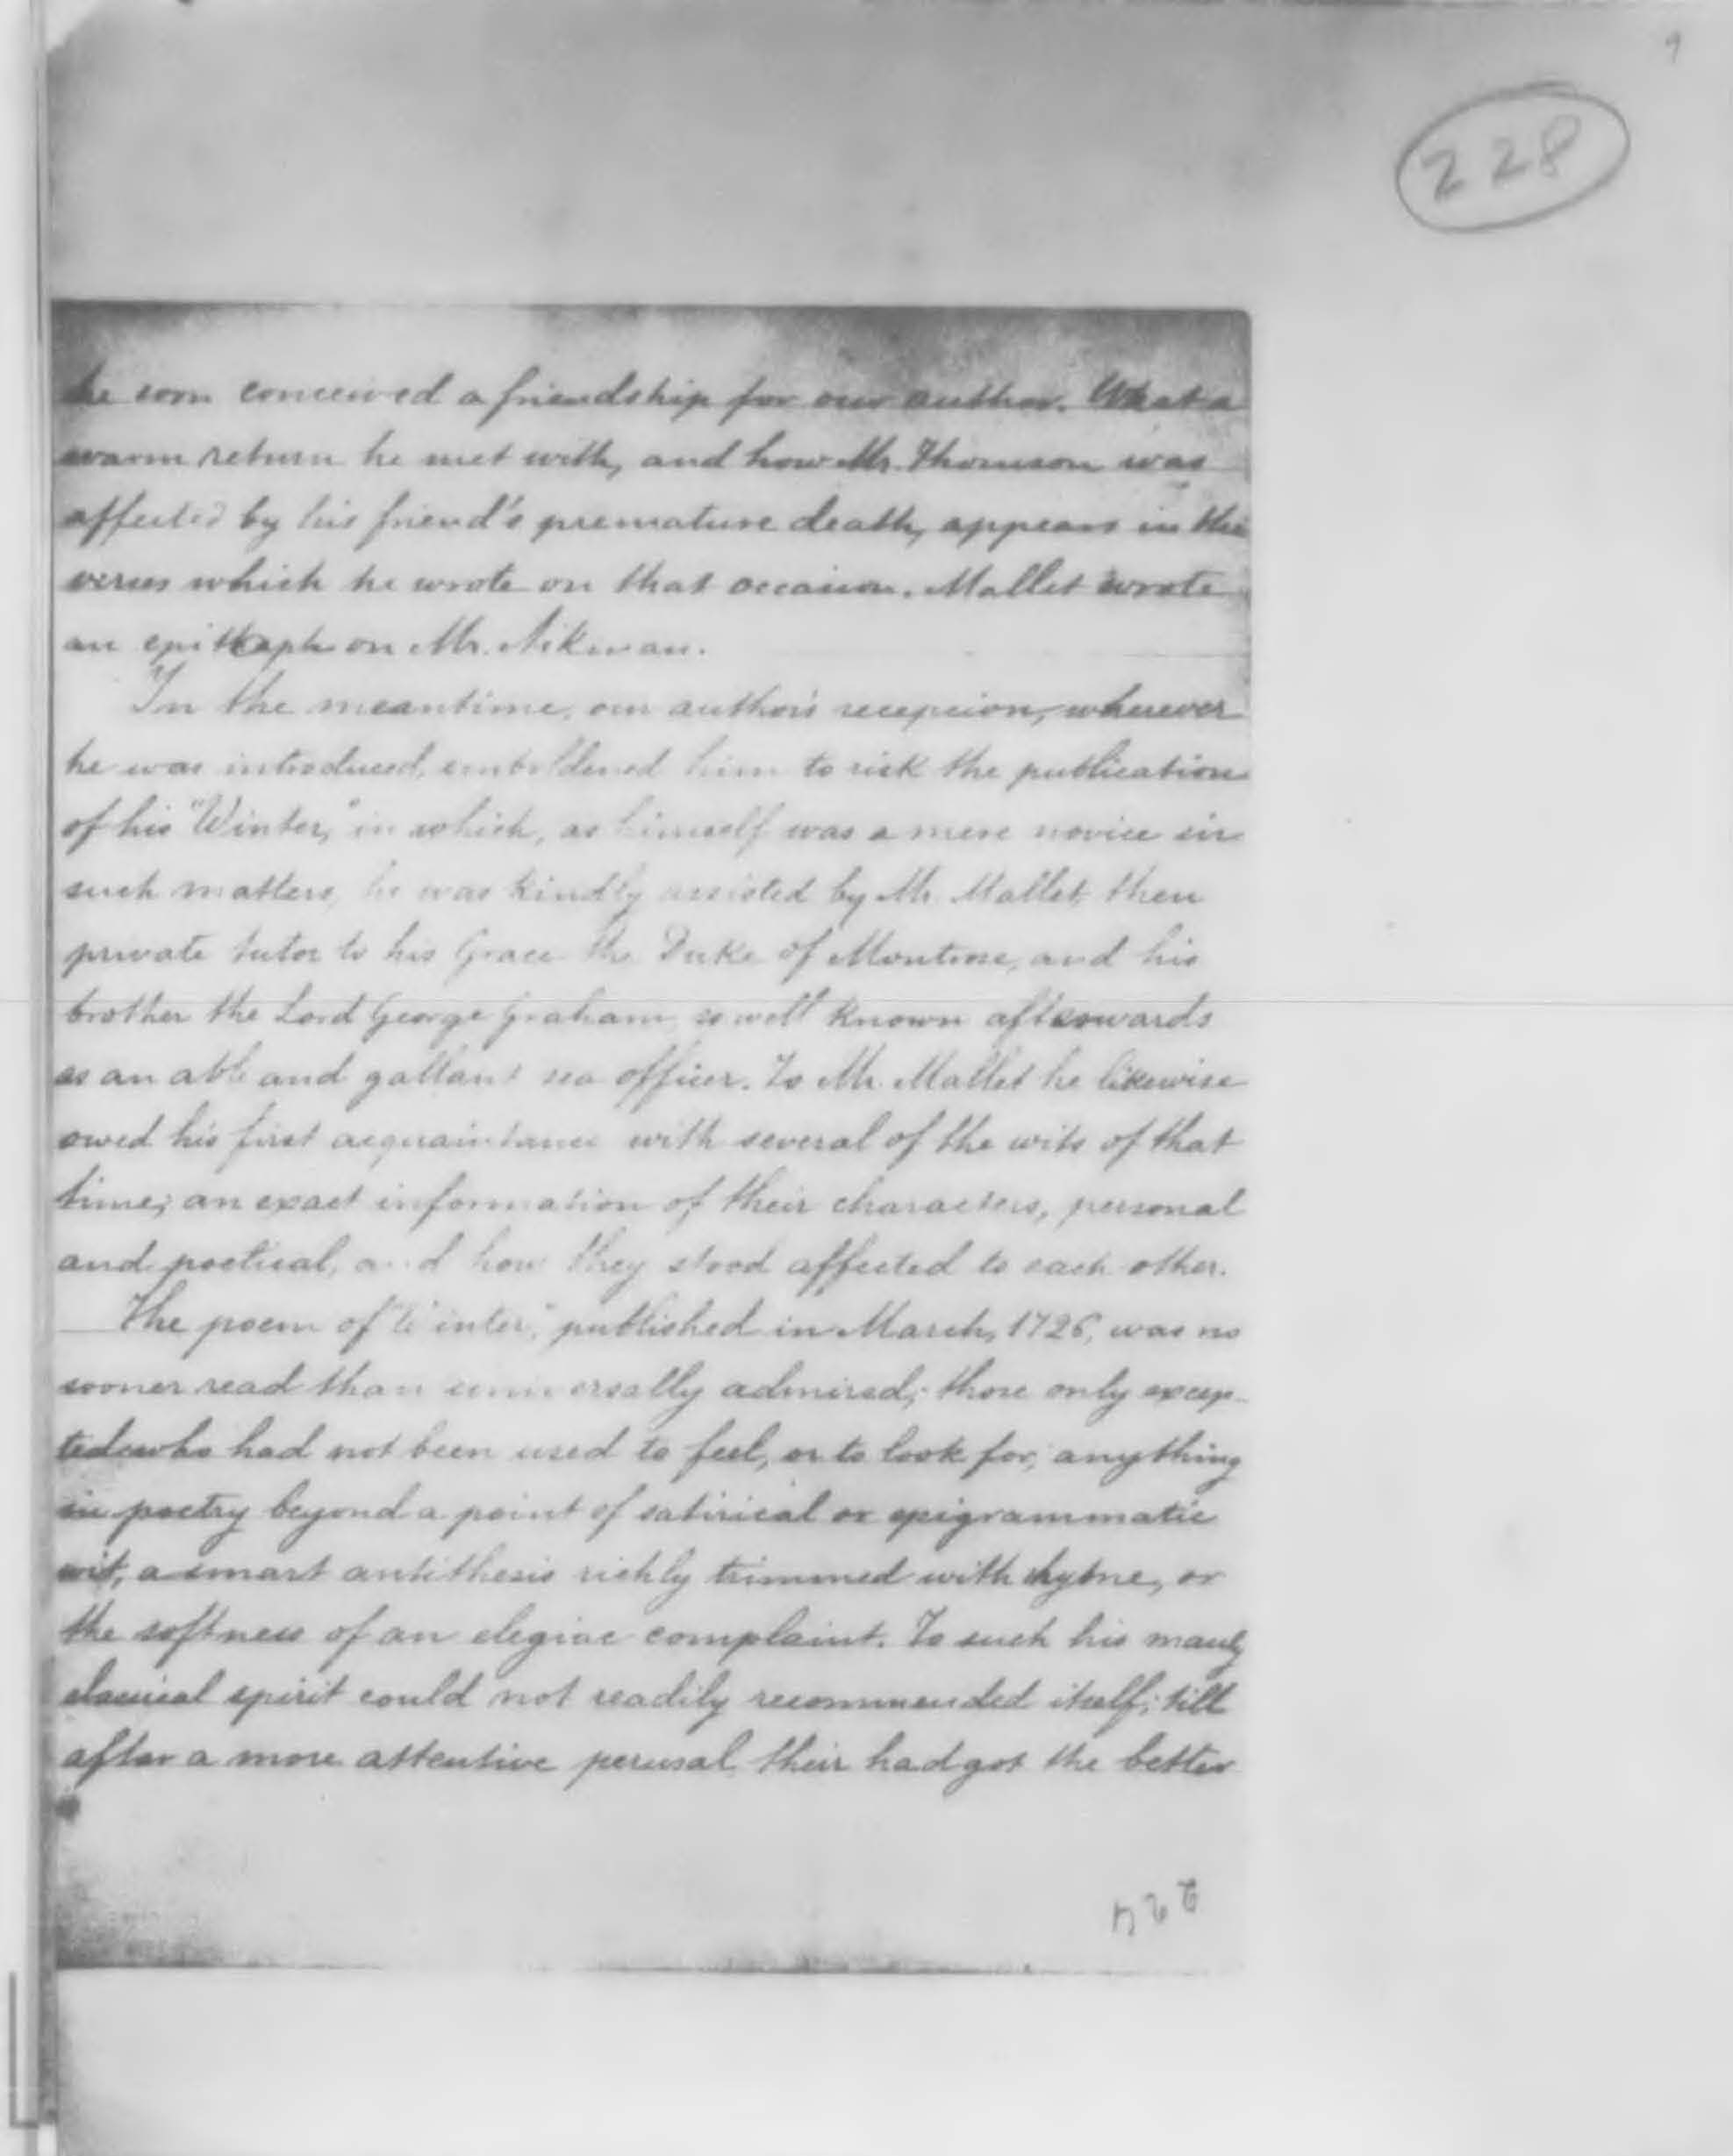 9
228
he soon conceived a friendship for our author. What a
warm return he met with, and how Mr. Thomson was
affected by his friend's premature death, appears in the
verses which he wrote on that occasion. Mallet wrote
an epitaph on Mr. Aikman.
In the meantime, our author's recepcion, wherever
he was introduced, emboldened him to risk the publication
of his "Winter," in which, as himself was a mere novice in
such matters, he was kindly assisted by Mr. Mallet, then
private tutor to his Grace the Duke of Montrose, and his
brother the Lord George Graham, so well known afterwards
as an able and gallant sea officer. To Mr. Mallet he likewise
owed his first acquaintance with several of the wits of that
time; an exact information of their characters, personal
and poetical, and how they stood affected to each other.
The poem of "Winter," published in March, 1726, was no
sooner read than universally admired; those only excep-
ted who had not been used to feel, or to look for, anything
in poetry beyond a point of satirical or epigrammatic
wit, a smart antithesis richly trimmed with rhyme, or
the softness of an elegiac complaint. To such his manly
classical spirit could not readily recommended itself; till
after a more attentive perusal, their had got the better